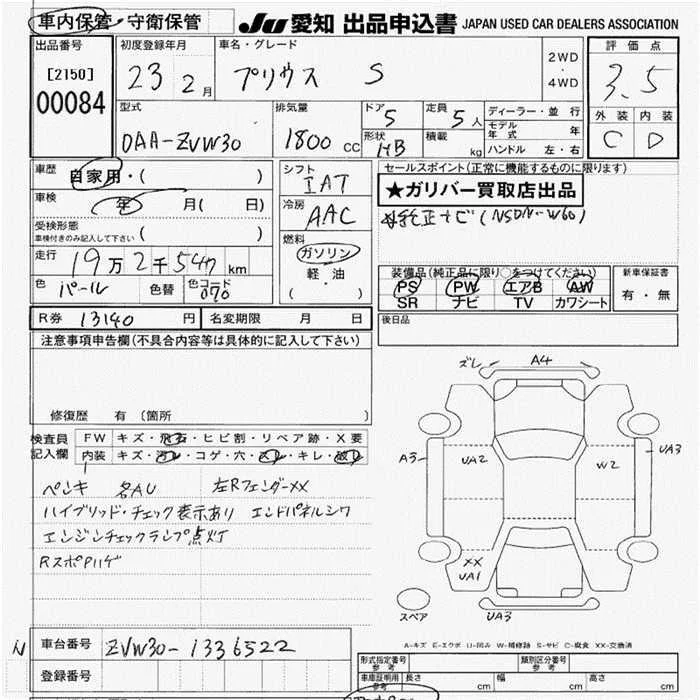 車内保管・守衛保管
JU 愛知 出品申込書 JAPAN USED CAR DEALERS ASSOCIATION
出品番号
[2150]
00084
初度登録年月
23 2月
車名・グレード
プリウス S
2WD
・
4WD
評価点
3.5
外装 内装
C D
型式
DAA-ZVW30
排気量
1800 CC
ドア 5
形状 HB
定員 5人
積載 kg
ディーラー・並行
モデル年式 年
ハンドル 左・右
車歴
自家用・( )
車検
年 月( 日)
受検形態
車検付きのみ記入して下さい ( )
走行
19万2千547km
色 パール 色替 色コード 070
シフト
IAT
冷房
AAC
燃料
ガソリン
軽・油
( ・ )
セールスポイント(正常に機能するものに限ります)
★ガリバー買取店出品
純正ナビ(NSDN-W60)
装備品(純正品に限り○をつけてください)
PS PW エアB AW
SR ナビ TV カワシート
新車保証書
有・無
後日品
R券 13140 円 名変期限 月 日
注意事項申告欄(不具合内容等は具体的に記入して下さい)
修復歴 有(箇所 )
検査員記入欄
FW キズ・飛石・ヒビ割・リペア跡・X要
内装 キズ・汚レ・コゲ・穴・スレ・キレ・破レ
ペンキ 名AU 左Rフェンダーxx
ハイブリッド・チェック表示あり エンドパネルシワ
エンジンチェックランプ点灯
RスポPハゲ
ズレ A4
A3 UA2 W2 UA3
XX
UA1
スペア UA3
A-キズ E-エクボ U-凹み W-補修跡 S-サビ C-腐食 XX-交換済
車台番号 ZVW30-1336522
登録番号
形式指定番号 参考 類別区分番号 参考
車庫証明用 参考 長さ cm 幅 cm 高さ cm